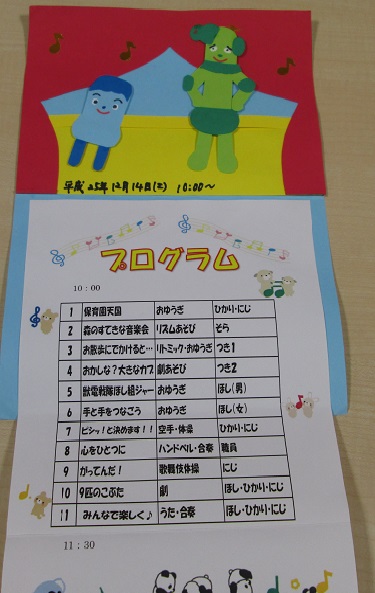 平成25年12月14日(土) 10:00～
プログラム
10：00
1 保育園天国 おゆうぎ ひかり・にじ
2 森のすてきな音楽会 リズムあそび そら
3 お散歩にでかけると… リトミック・おゆうぎ つき1
4 おかしな？大きなカブ 劇あそび つき2
5 獣電戦隊ほし組ジャー おゆうぎ ほし(男)
6 手と手をつなごう おゆうぎ ほし(女)
7 ビシッ！と決めます！！ 空手・体操 ひかり・にじ
8 心をひとつに ハンドベル・合奏 職員
9 かってんだ！ 歌舞伎体操 にじ
10 9匹のこぶた 劇 ほし・ひかり・にじ
11 みんなで楽しく♪ うた・合奏 ほし・ひかり・にじ
11：30